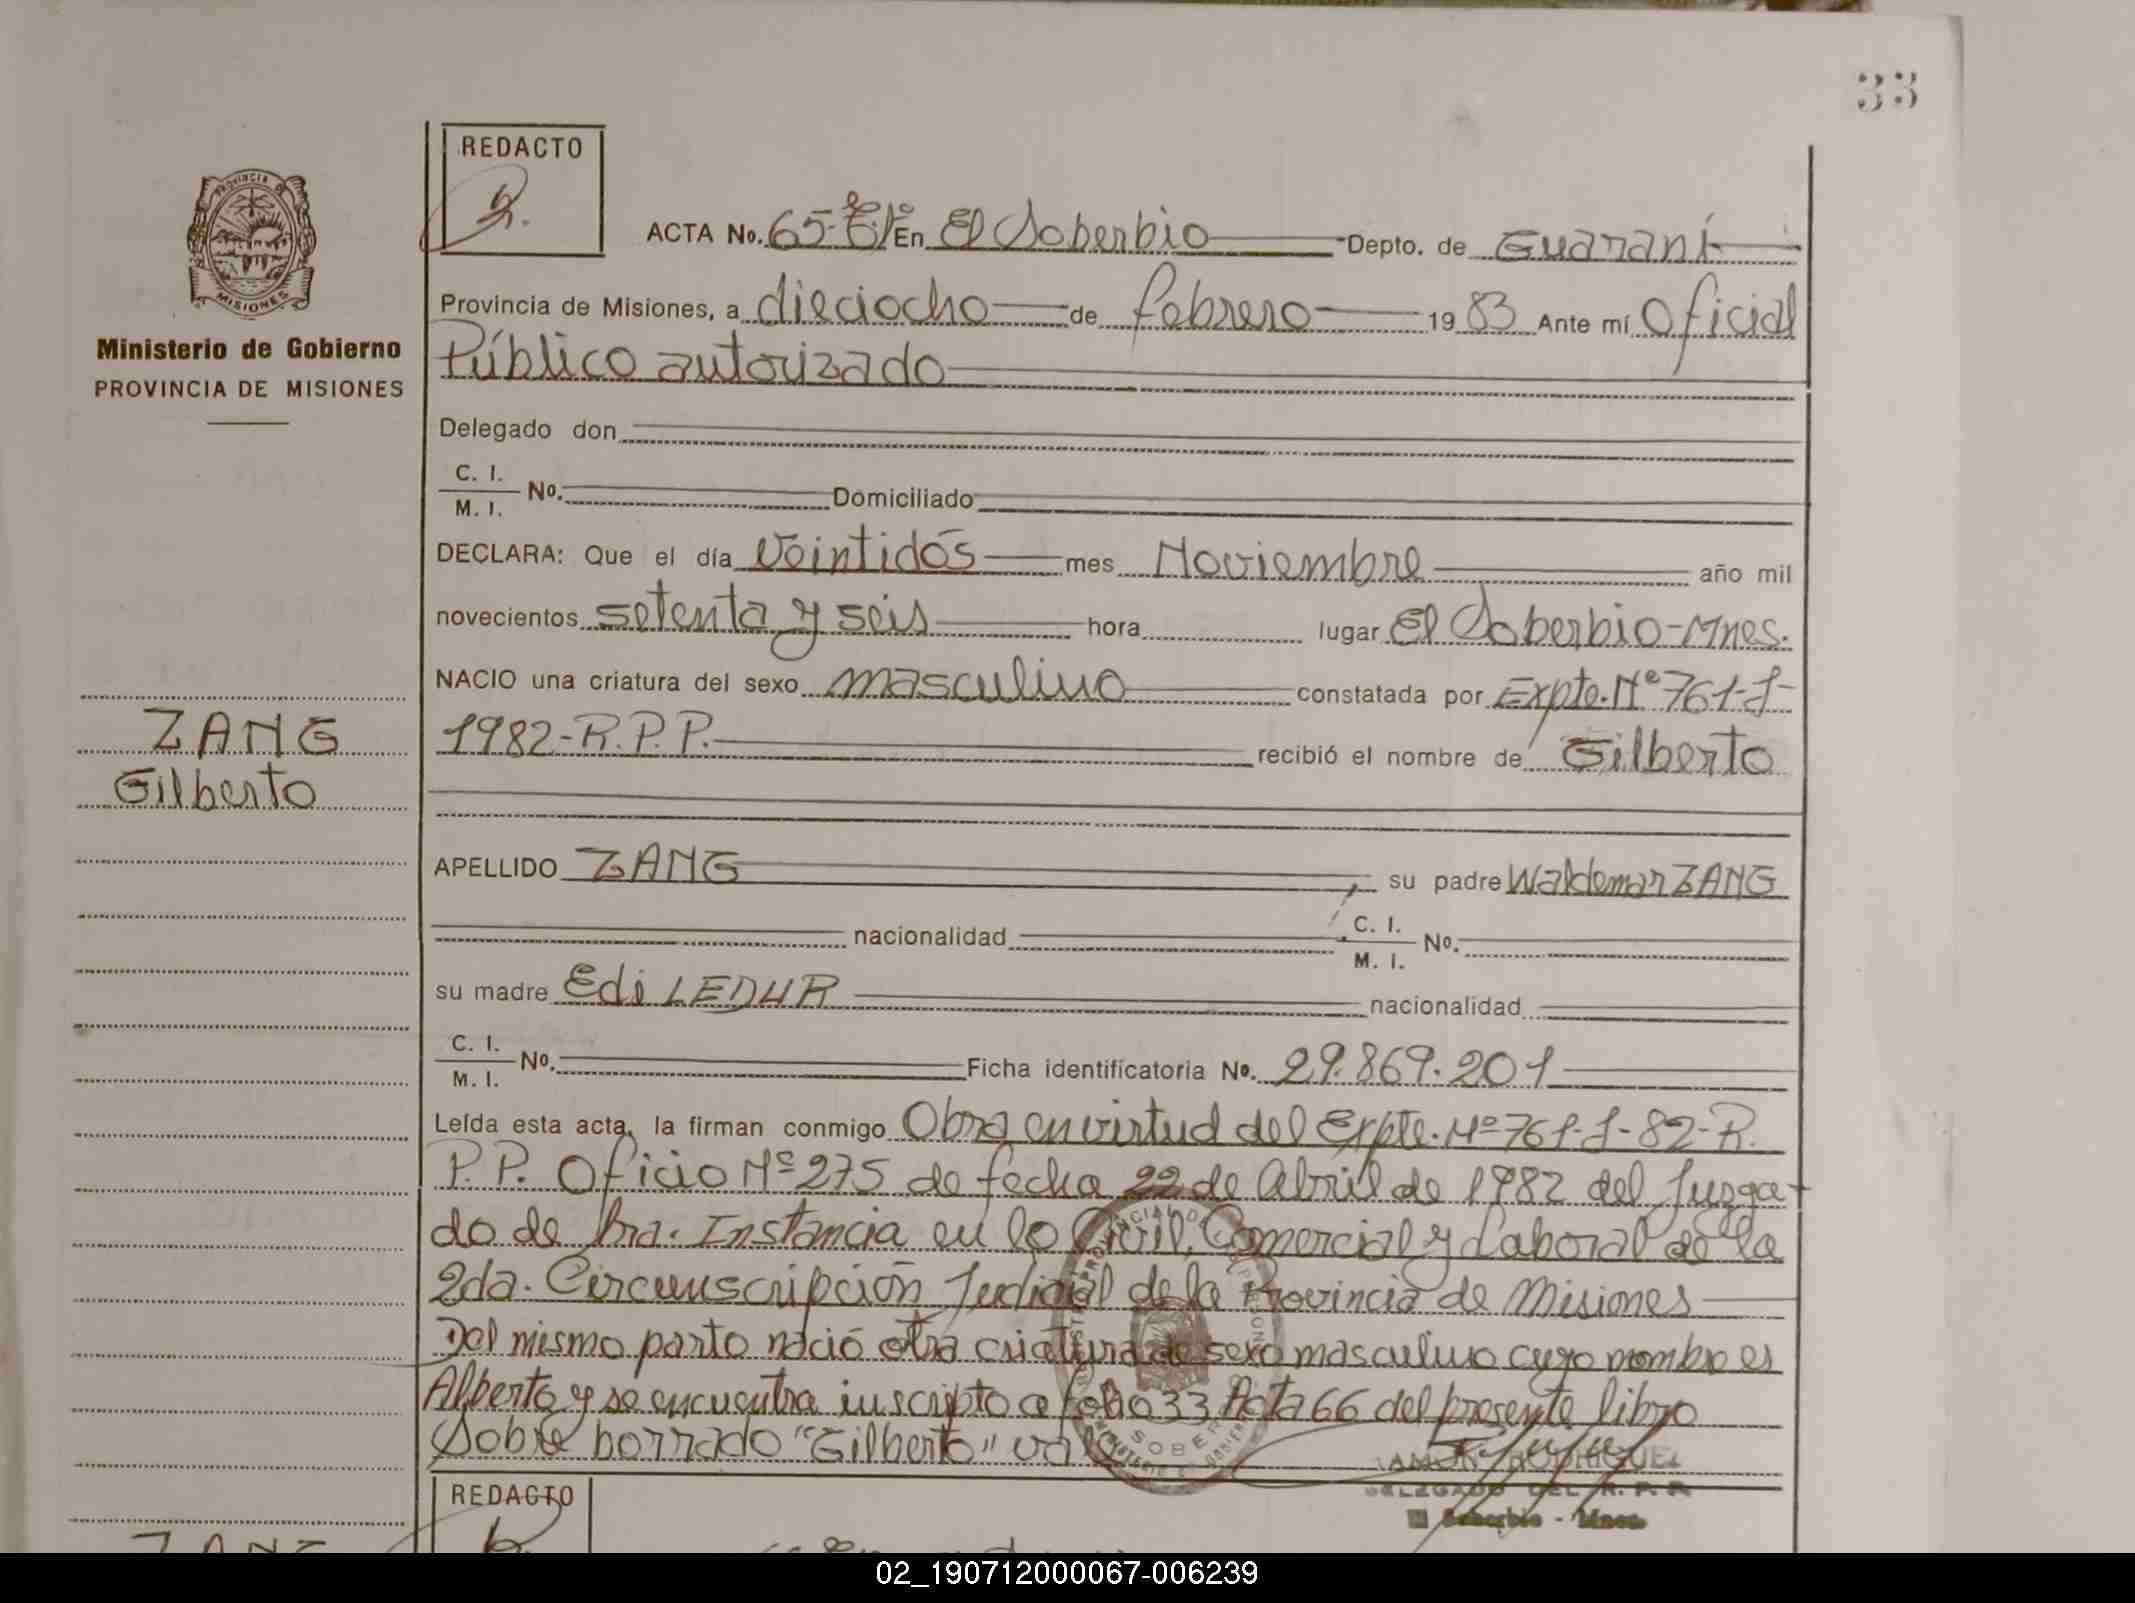 33
REDACTO
ACTA No. 65- En El Soberbio Depto. de Guaraní
Provincia de Misiones, a dieciocho de febrero 1983 Ante mí Oficial
Público autorizado
PROVINCIA DE
MISIONES
Ministerio de Gobierno
PROVINCIA DE MISIONES
Delegado don
C. I.
M. I. No. Domiciliado
DECLARA: Que el día Veintidós mes Noviembre año mil
novecientos setenta y seis hora lugar El Soberbio-Mnes.
NACIO una criatura del sexo masculino constatada por Expte. Nº 761-J-
1982-R.P.P. recibió el nombre de Gilberto
ZANG
Gilberto
APELLIDO ZANG su padre Waldemar ZANG
nacionalidad C. I. M. I. No.
su madre Edi LEDUR nacionalidad
C. I.
M. I. No. Ficha identificatoria No. 29.869.201
Leída esta acta, la firman conmigo Obra en virtud del Expte. Nº 761-J-82-R.
P.P. Oficio Nº 275 de fecha 22 de Abril de 1982 del Juzga-
do de 1ra. Instancia en lo Civil, Comercial y Laboral de la
2da. Circunscripción Judicial de la Provincia de Misiones
Del mismo parto nació otra criatura de sexo masculino cuyo nombre es
Alberto y se encuentra inscripto a folio 33 Acta 66 del presente libro
Sobre borrado "Gilberto" vale
RAMON RODRIGUEZ
DELEGADO DEL R. P. P.
El Soberbio - Mnes.
REDACTO
ZANG
02_190712000067-006239